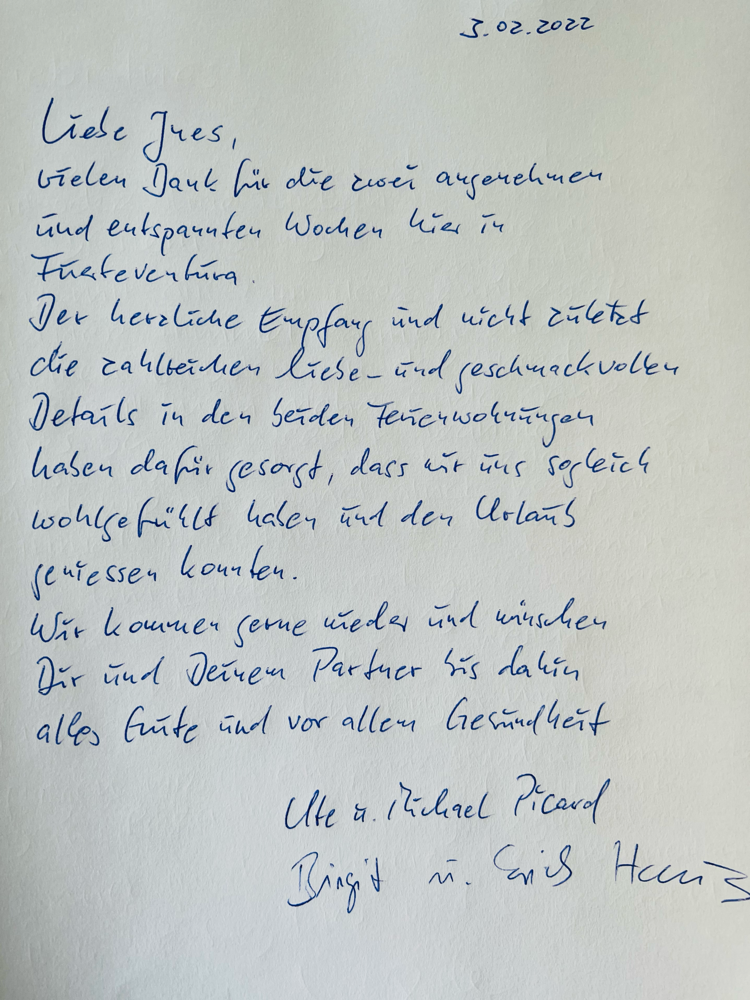 3.02.2022
Liebe Ines,
vielen Dank für die zwei angenehmen
und entspannten Wochen hier in
Fuerteventura.
Der herzliche Empfang und nicht zuletzt
die zahlreichen liebe- und geschmackvollen
Details in den beiden Ferienwohnungen
haben dafür gesorgt, dass wir uns sogleich
wohlgefühlt haben und den Urlaub
geniessen konnten.
Wir kommen gerne wieder und wünschen
Dir und Deinem Partner bis dahin
alles Gute und vor allem Gesundheit
Ute u. Michael Picard
Birgit u. Erich